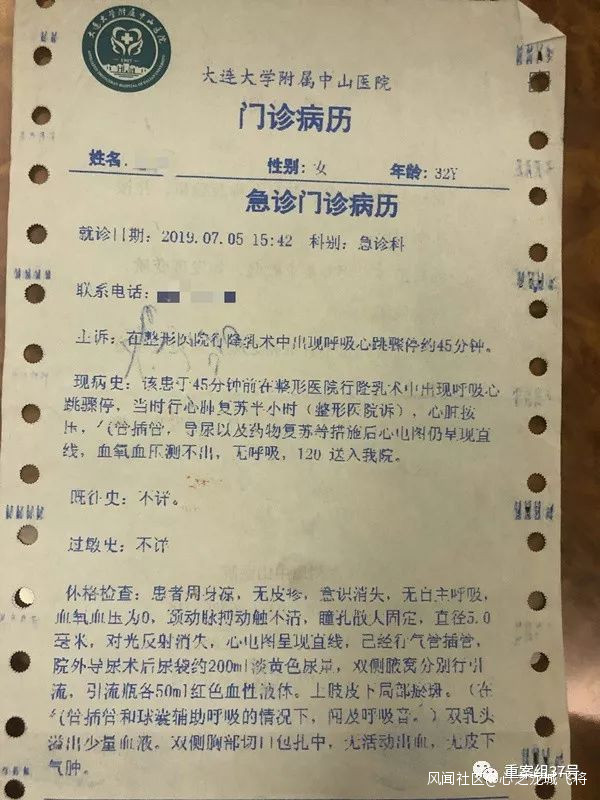 大连大学附属中山医院
大连大学附属中山医院
门诊病历
姓名: 性别: 女 年龄: 32Y
急诊门诊病历
就诊日期: 2019.07.05 15:42 科别: 急诊科
联系电话:
主诉: 在整形医院行隆乳术中出现呼吸心跳骤停约45分钟。
现病史: 该患于45分钟前在整形医院行隆乳术中出现呼吸心
跳骤停, 当时行心肺复苏半小时 (整形医院诉), 心脏按
压, 气管插管, 导尿以及药物复苏等措施后心电图仍呈现直
线, 血氧血压测不出, 无呼吸, 120 送入我院。
既往史: 不详。
过敏史: 不详
体格检查: 患者周身凉, 无皮疹, 意识消失, 无自主呼吸,
血氧血压为0, 颈动脉搏动触不清, 瞳孔散大固定, 直径5.0
毫米, 对光反射消失, 心电图呈现直线, 已经行气管插管,
院外导尿术后尿袋约200ml淡黄色尿量, 双侧腋窝分别行引
流, 引流瓶各50ml红色血性液体。上肢皮下局部瘀斑。(在
气管插管和球囊辅助呼吸的情况下, 闻及呼吸音。) 双乳头
溢出少量血液。双侧胸部切口包扎中, 无活动出血, 无皮下
气肿。
重案组37号
风闻社区@心之龙城飞将